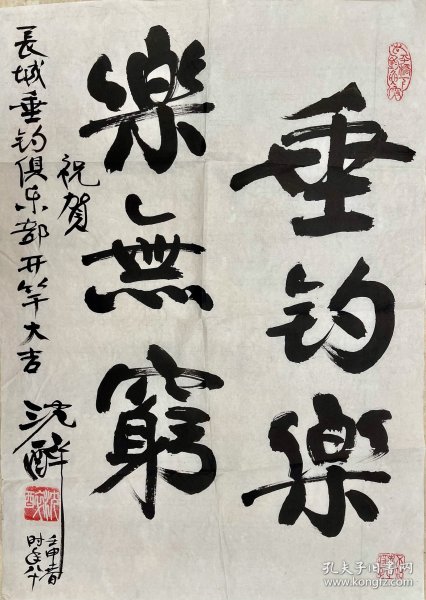 垂钓樂
樂無窮
祝賀
長城垂钓俱乐部开竿大吉
沈醉
壬申春
时年八十
孔夫子旧书网
www.kongfz.com